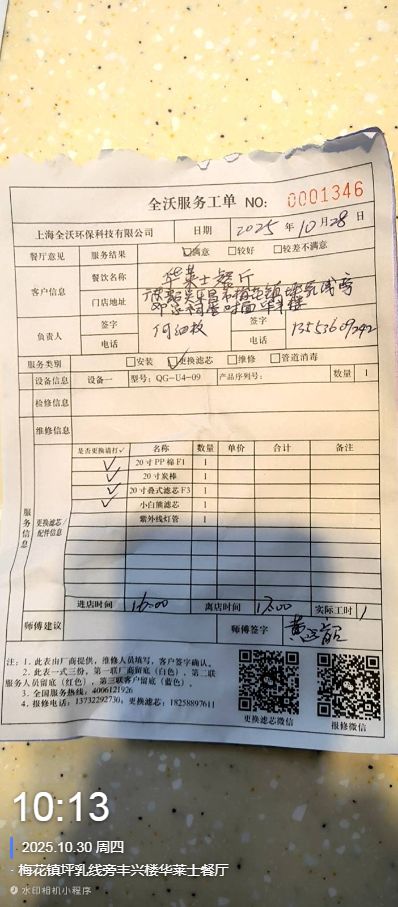 全沃服务工单 NO: 0001346
上海全沃环保科技有限公司 日期 2025 年 10 月 28 日
餐厅意见 服务结果 ☑满意 □较好 □较差不满意
客户信息 餐饮名称 华莱士餐厅
门店地址
负责人 签字 签字
电话 电话 13553609292
服务类别 □安装 ☑更换滤芯 □维修 □管道消毒
设备信息 设备一 型号: QG-U4-09 产品序列号: 数量 1
检修信息
维修信息
服务信息 更换滤芯/配件信息
是否更换请打√ 名称 数量 单价 合计 备注
✓ 20寸PP棉F1 1
✓ 20寸炭棒 1
✓ 20寸叠式滤芯F3 1
✓ 小白熊滤芯 1
紫外线灯管 1
进店时间 16:00 离店时间 17:00 实际工时 1
师傅建议 师傅签字
注: 1. 此表由厂商提供, 维修人员填写, 客户签字确认。
2. 此表一式三份, 第一联厂商留底(白色)、第二联
服务人员留底(红色)、第三联客户留底(蓝色)。
3. 全国服务热线: 4006121926
4. 报修电话: 13732292730, 更换滤芯: 18258897611
更换滤芯微信 报修微信
10:13
2025.10.30 周四
· 梅花镇坪乳线旁丰兴楼华莱士餐厅
水印相机小程序